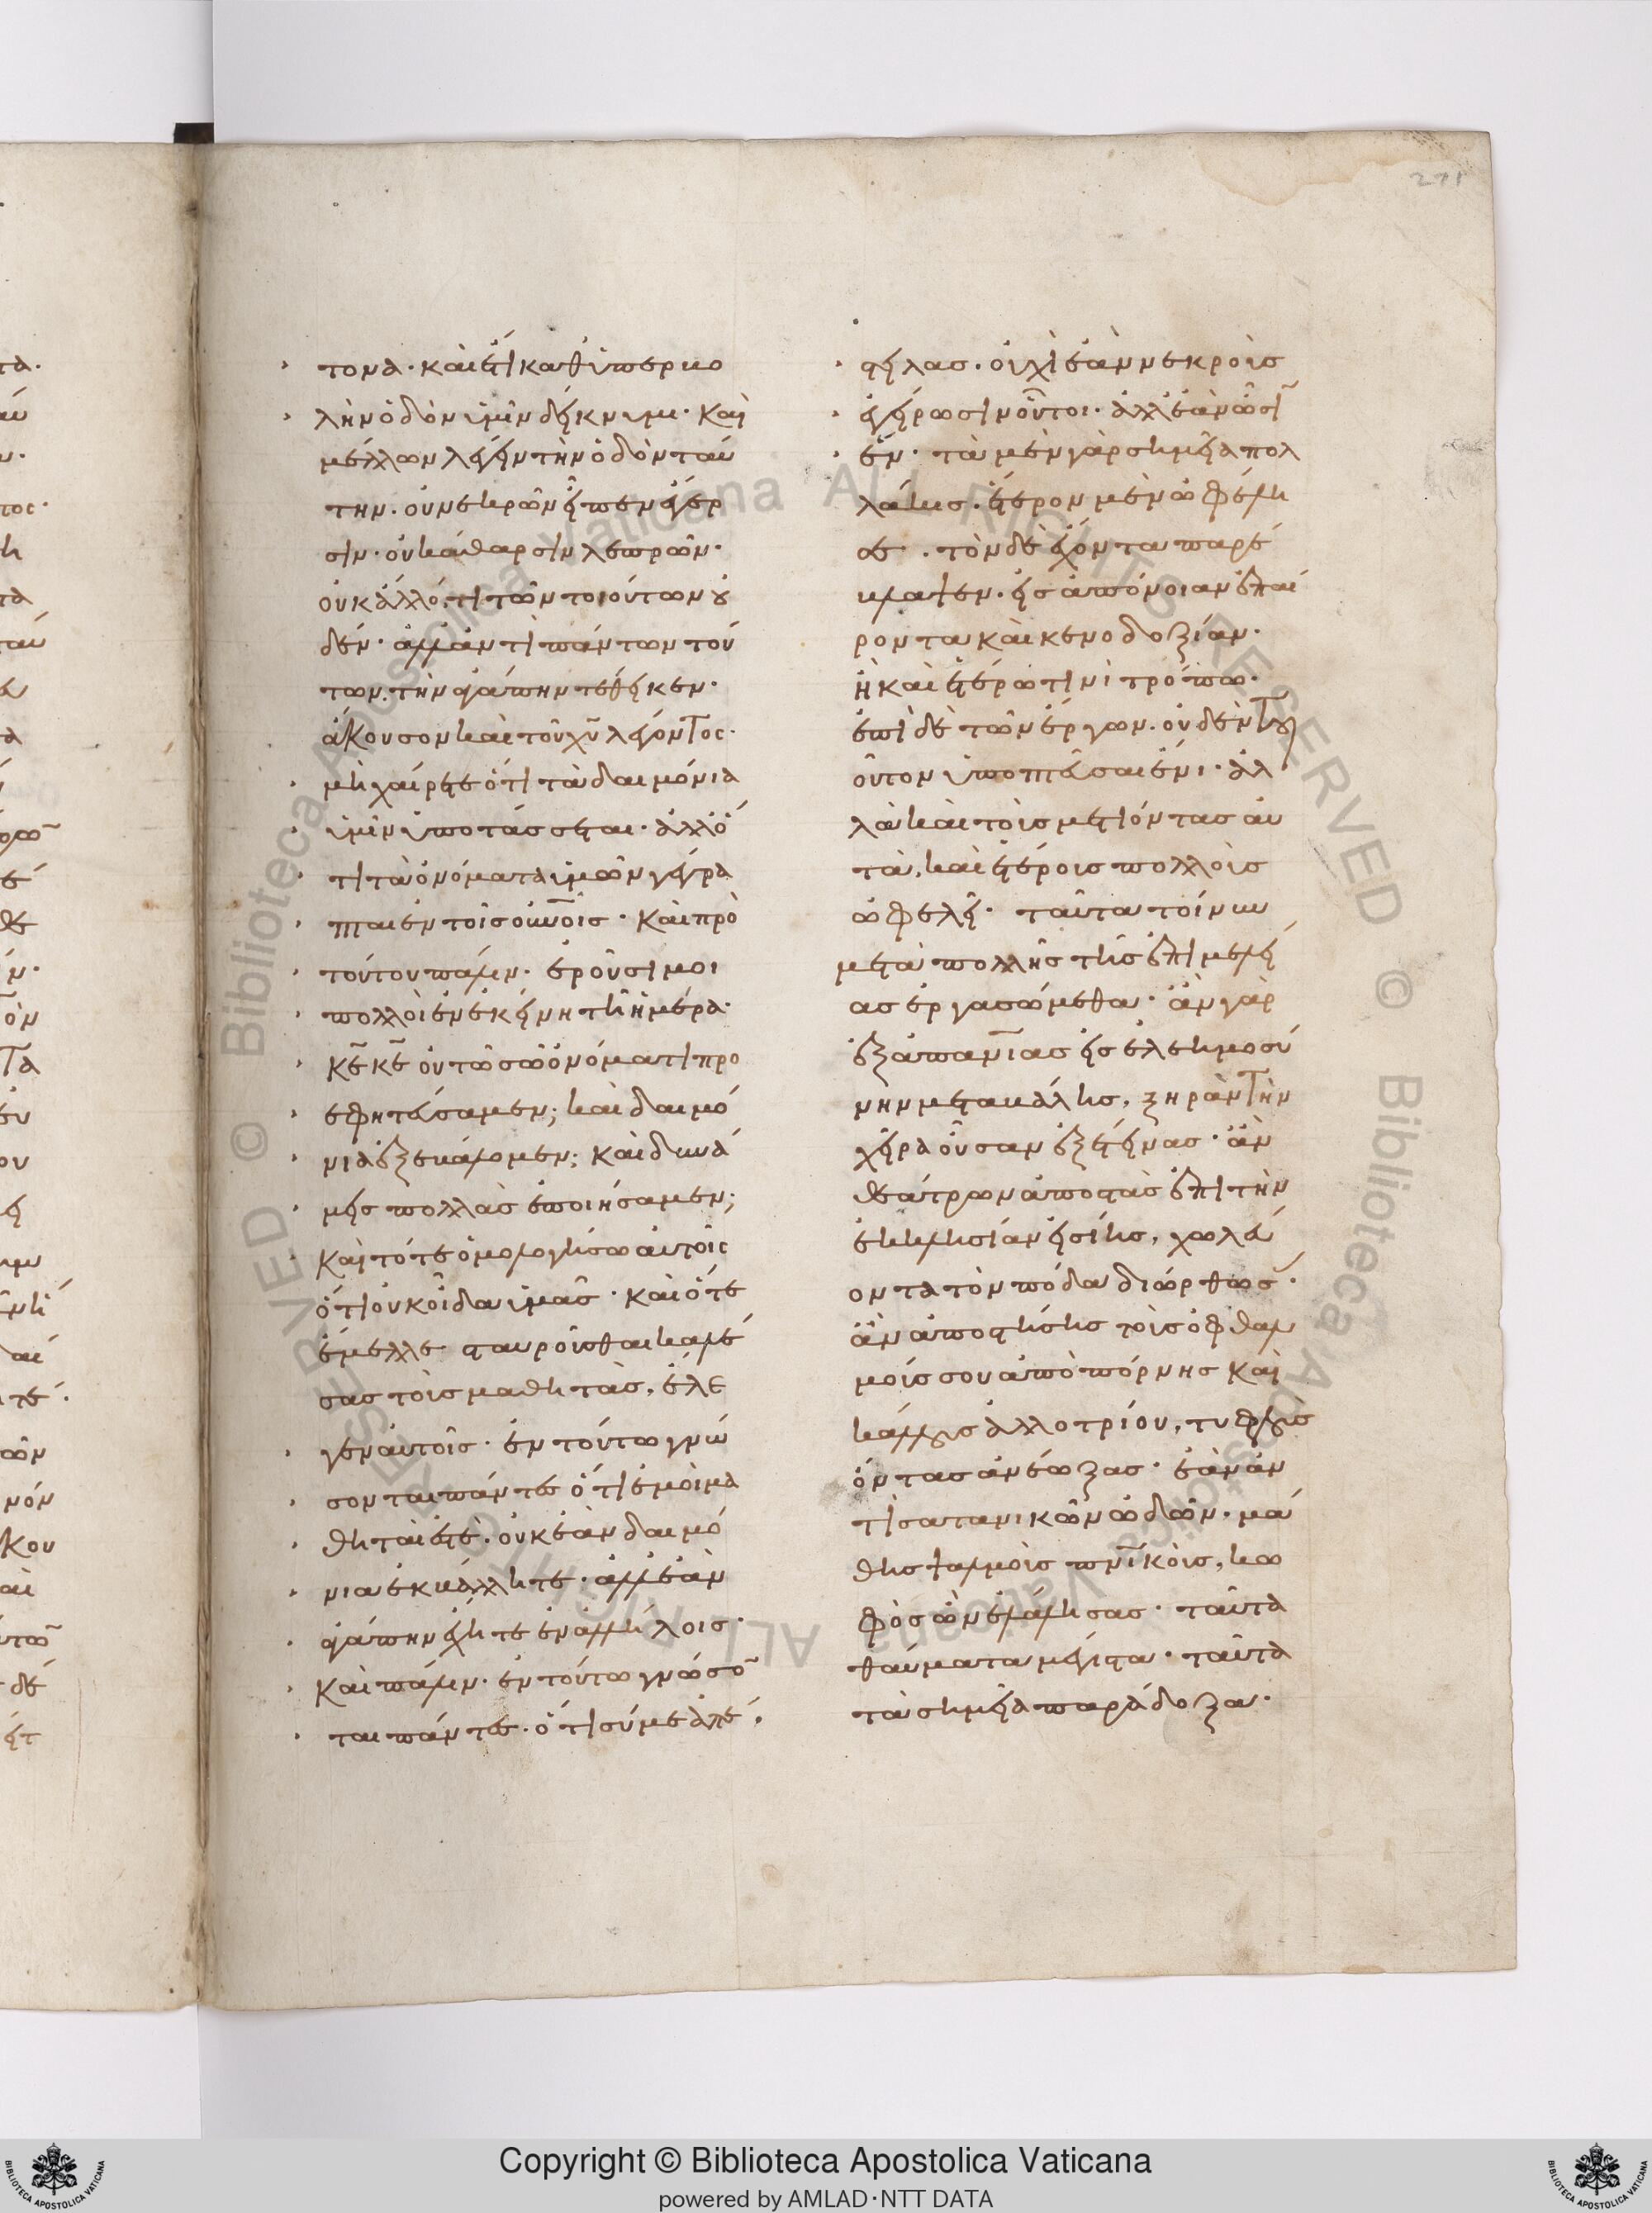 271
τονα· καὶ ἔτι καθ ὑπερβο
λὴν ὁδὸν ὑμῖν δείκνυμι· καὶ
μέλλων λέγειν τὴν ὁδὸν ταύ
την· οὐ νεκρῶν εἶπεν ἔγερ
σιν· οὐ κάθαρσιν λεπρῶν·
οὐκ ἄλλό τι τῶν τοιούτων οὐ
δέν· ἀλλ ἀντὶ πάντων τού
των τὴν ἀγάπην τέθεικεν·
ἄκουσον καὶ τοῦ χῦ λέγοντος·
μὴ χαίρετε ὅτι τὰ δαιμόνια
ὑμῖν ὑποτάσσεται· ἀλλ ὅ
τι τὰ ὀνόματα ὑμῶν γέγρα
πται ἐν τοῖς οὐνοῖς· καὶ πρὸ
τούτου πάλιν· ἐροῦσί μοι
πολλοὶ ἐν ἐκείνη τῆ ἡμέρα·
κε κε οὐ τῶ σῶ ὀνόματι προ
εφητεύσαμεν; καὶ δαιμό
νια ἐξεβάλομεν; καὶ δυνά
μεις πολλὰς ἐποιήσαμεν;
καὶ τότε ὁμολογήσω αὐτοῖς
ὅτι οὐκ οἶδα ὑμᾶς· καὶ ὅτε
ἔμελλε σταυροῦσθαι καλέ
σας τοὺς μαθητὰς, ἔλε
γεν αὐτοῖς· ἐν τούτω γνώ
σονται πάντες ὅτι ἐμοὶ μα
θηταί ἐστε· οὐκ ἐὰν δαιμό
νια ἐκβάλλητε· ἀλλ ἐὰν
ἀγάπην ἔχητε ἐν ἀλλήλοις·
καὶ πάλιν· ἐν τούτω γνώσο
ται πάντες· ὅτι σύ με ἀπέ
στειλας· οὐχὶ ἐὰν νεκροὺς
ἐγείρωσιν οὗτοι· ἀλλ ἐὰν ὦσιν
ἕν· τὰ μὲν γὰρ σημεῖα πολ
λάκις· ἕτερον μὲν ὠφέλη
σε· τὸν δὲ ἔχοντα παρέ
βλαψεν· εἰς ἀπόνοιαν ἐπαί
ροντα καὶ κενοδοξίαν·
ἢ καὶ ἑτέρω τινὶ τρόπω·
ἐπὶ δὲ τῶν ἔργων· οὐδὲν τοι
οῦτον ὑποπτεῦσαι ἔνι· ἀλ
λὰ καὶ τοὺς μετιόντας αὐ
τὰ, καὶ ἑτέρους πολλοὺς
ὠφελεῖ· ταῦτα τοίνυν
μετὰ πολλῆς τῆς ἐπιμελεί
ας ἐργασώμεθα· ἂν γὰρ
ἐξ ἀπανθρωπίας εἰς ἐλεημοσύ
νην μεταβάλης, ξηρὰν τὴν
χεῖρα οὖσαν ἐξέτεινας· ἂν
θεάτρων ἀποστὰς ἐπὶ τὴν
ἐκκλησίαν εἰσίης, χωλεύ
οντα τὸν πόδα διώρθωσας·
ἂν ἀποστήσης τοὺς ὀφθαλ
μούς σου ἀπὸ πόρνης καὶ
κάλλους ἀλλοτρίου, τυφλοὺς
ὄντας ἀνέωξας· ἐὰν ἀν
τὶ σατανικῶν ὠδῶν· μά
θης ψαλμοὺς πνικοὺς, κω
φὸς ὢν ἐλάλησας· ταῦτα
θαύματα μέγιστα· ταῦτα
τὰ σημεῖα παράδοξα·
Copyright © Biblioteca Apostolica Vaticana
powered by AMLAD·NTT DATA